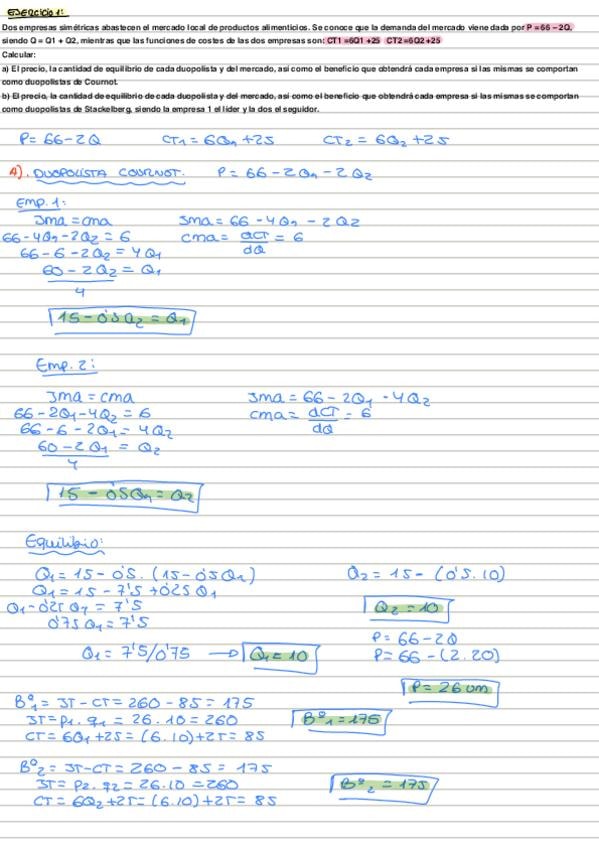 EJERCICIO 1:
Dos empresas simétricas abastecen el mercado local de productos alimenticios. Se conoce que la demanda del mercado viene dada por P = 66 – 2Q,
siendo Q = Q1 + Q2, mientras que las funciones de costes de las dos empresas son: CT1 =6Q1 +25 CT2=6Q2+25
Calcular:
a) El precio, la cantidad de equilibrio de cada duopolista y del mercado, así como el beneficio que obtendrá cada empresa si las mismas se comportan
como duopolistas de Cournot.
b) El precio, la cantidad de equilibrio de cada duopolista y del mercado, así como el beneficio que obtendrá cada empresa si las mismas se comportan
como duopolistas de Stackelberg, siendo la empresa 1 el líder y la dos el seguidor.
P = 66 - 2Q CT1 = 6Q1 + 25 CT2 = 6Q2 + 25
A). DUOPOLISTA COURNOT. P = 66 - 2Q1 - 2Q2
Emp. 1:
Ima = cma Ima = 66 - 4Q1 - 2Q2
66 - 4Q1 - 2Q2 = 6 cma = dCT/dQ = 6
66 - 6 - 2Q2 = 4Q1
60 - 2Q2 / 4 = Q1
15 - 0'5Q2 = Q1
Emp. 2:
Ima = cma Ima = 66 - 2Q1 - 4Q2
66 - 2Q1 - 4Q2 = 6 cma = dCT/dQ = 6
66 - 6 - 2Q1 = 4Q2
60 - 2Q1 / 4 = Q2
15 - 0'5Q1 = Q2
Equilibrio:
Q1 = 15 - 0'5. (15 - 0'5Q1) Q2 = 15 - (0'5. 10)
Q1 = 15 - 7'5 + 0'25 Q1
Q1 - 0'25 Q1 = 7'5 Q2 = 10
0'75 Q1 = 7'5 P = 66 - 2Q
Q1 = 7'5/0'75 → Q1 = 10 P = 66 - (2. 20)
P = 26 um
Bº1 = IT - CT = 260 - 85 = 175
IT = P1. q1 = 26. 10 = 260 Bº1 = 175
CT = 6Q1 + 25 = (6. 10) + 25 = 85
Bº2 = IT - CT = 260 - 85 = 175
IT = P2. q2 = 26. 10 = 260 Bº2 = 175
CT = 6Q2 + 25 = (6. 10) + 25 = 85